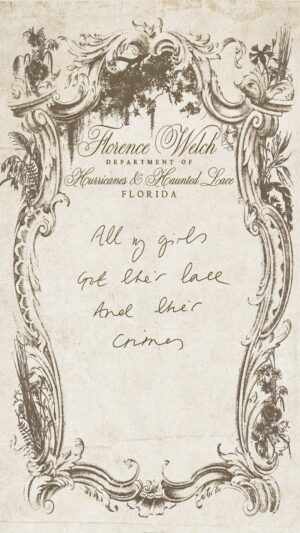 Florence Welch
DEPARTMENT OF
Hurricanes & Haunted Lace
FLORIDA
All my girls
Got their lace
And their
crimes